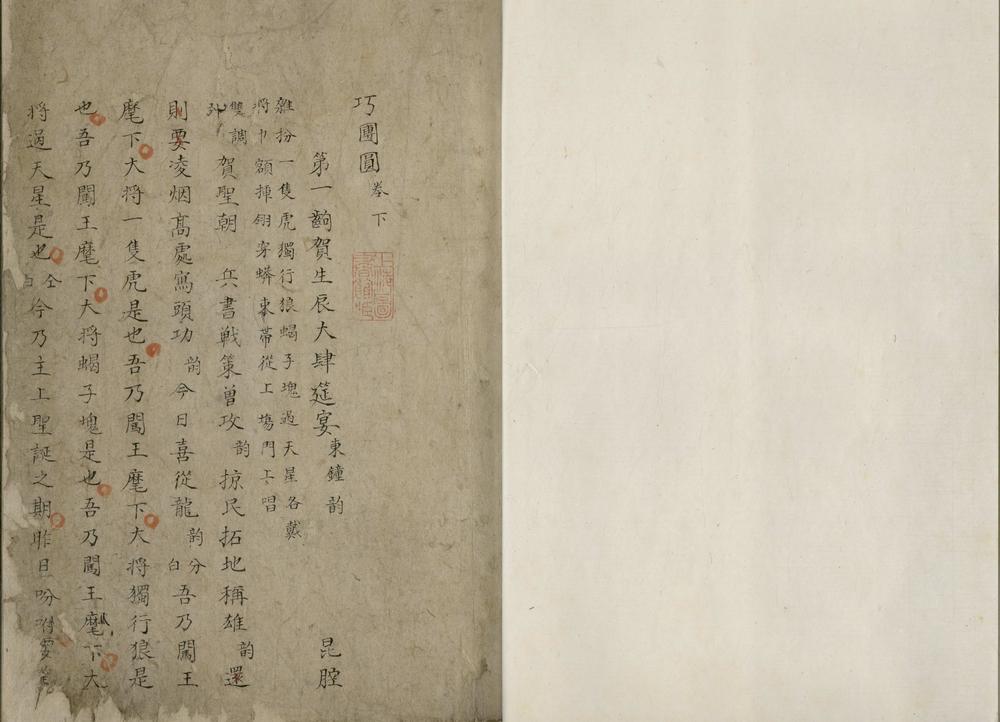 巧團圓 卷下
第一齣賀生辰大肆筵宴 東鐘韵 昆腔
雜扮一隻虎獨行狼蝎子塊過天星各戴
將巾額挿翎穿蟒束帶從上塲門上唱
雙調 賀聖朝 兵書戰策曾攻韵掠民拓地稱雄韵還
則要凌烟髙處寫頭功韵今日喜從龍韵分白吾乃闖王
麾下大將一隻虎是也吾乃闖王麾下大將獨行狼是
也吾乃闖王麾下大將蝎子塊是也吾乃闖王麾下大
將過天星是也仝白今乃主上聖誕之期昨日吩咐要
上海圖書館藏